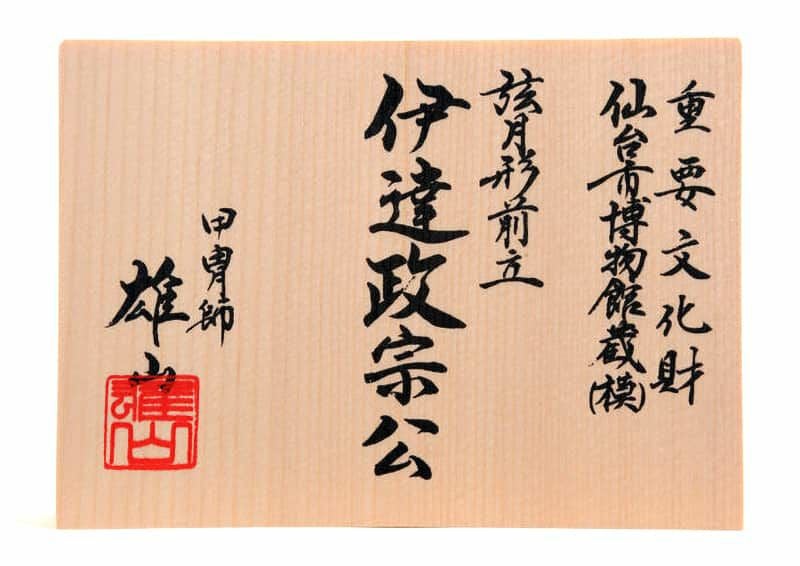 重要文化財
仙台市博物館蔵(模)
弦月形前立
伊達政宗公
甲冑師
雄山
雄山